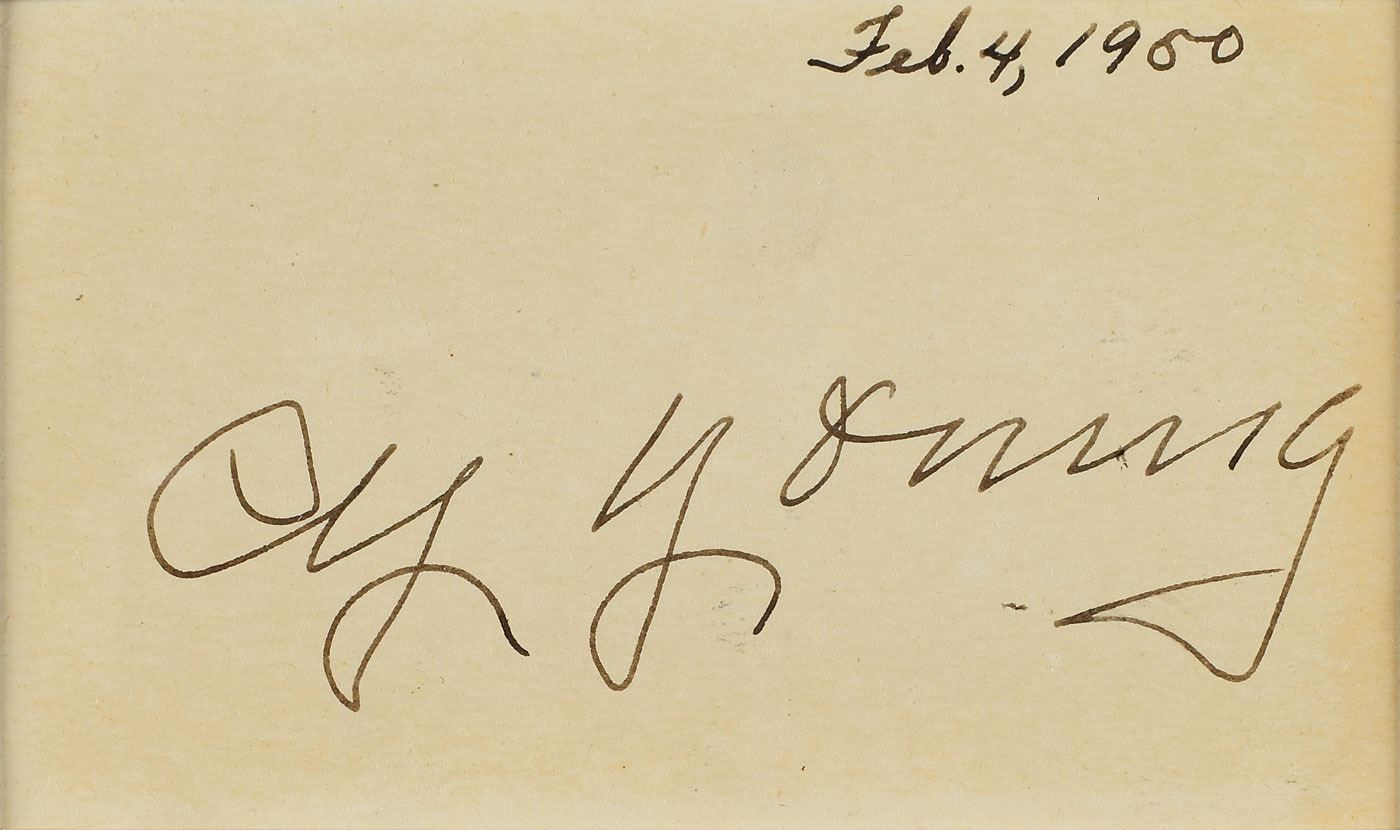 Feb. 4, 1950
Cy Young